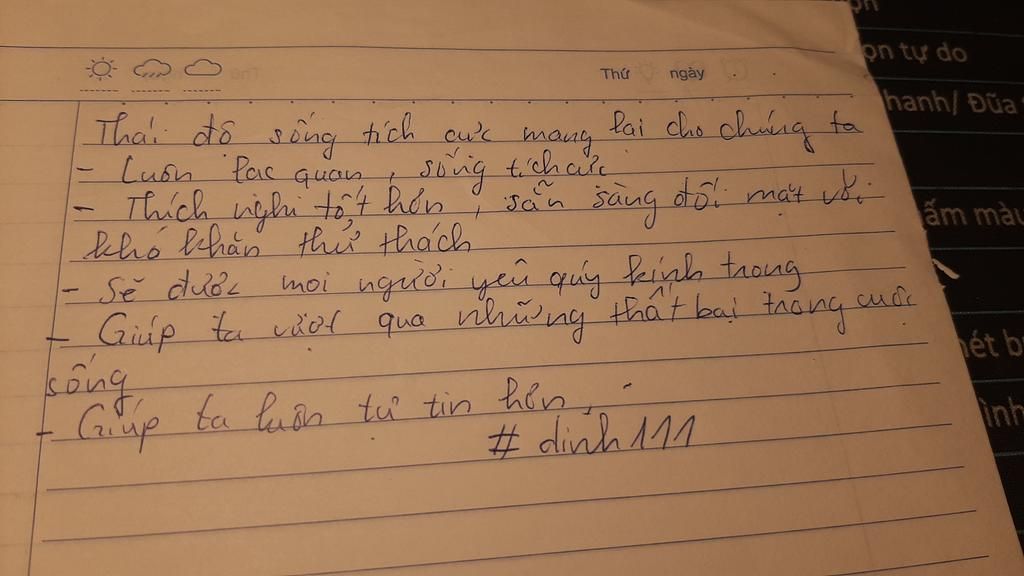 ọn tự do
Thứ ngày
hanh/ Đũa
Thái độ sống tích cực mang lại cho chúng ta
- Luôn lạc quan, sống tích cực
- Thích nghi tốt hơn, sẵn sàng đối mặt với
ấm màu
khó khăn thử thách
- Sẽ được mọi người yêu quý kính trọng
- Giúp ta vượt qua những thất bại trong cuộc
ét b
sống
- Giúp ta luôn tự tin hơn.
ình
# dinh111